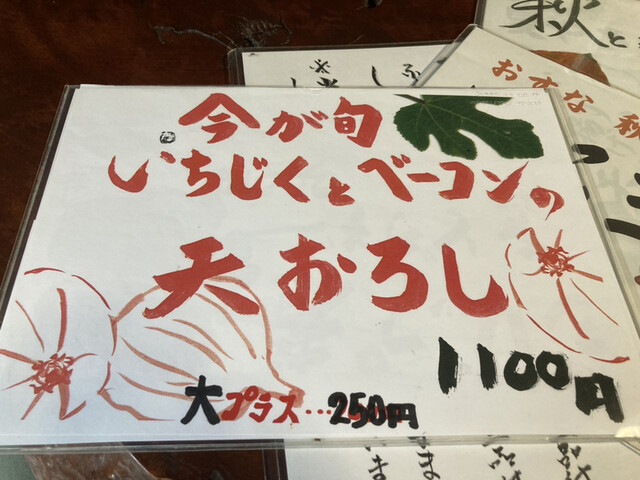 今が旬
いちじくとベーコンの
天おろし
1100円
大プラス…250円
秋と
おすすめ